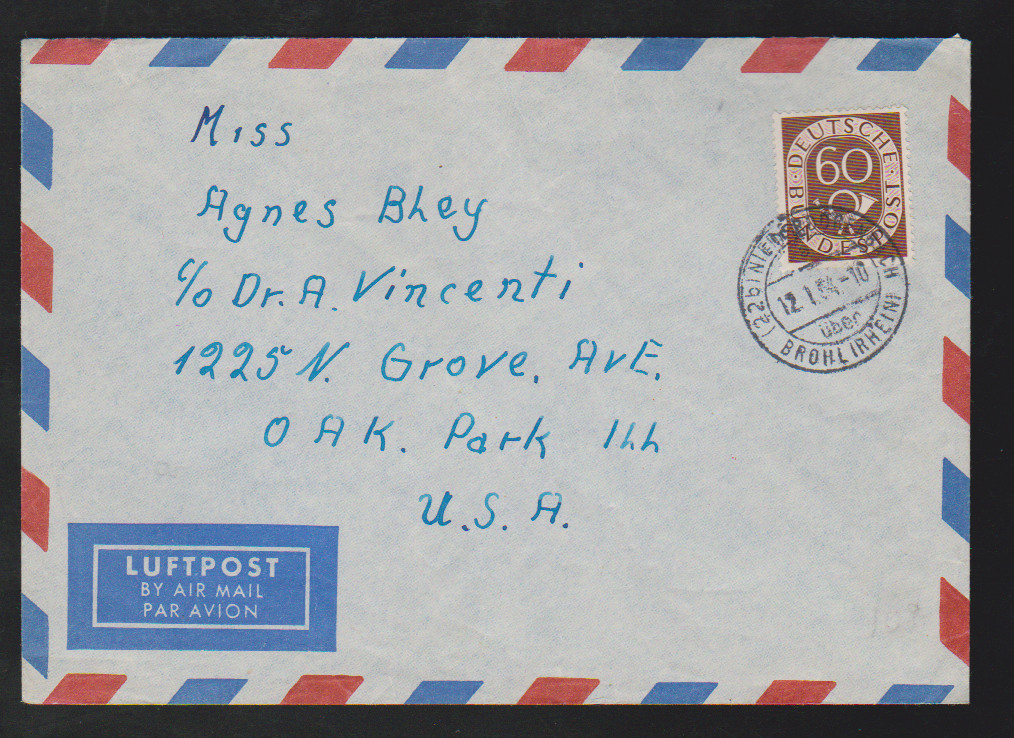 Miss
Agnes Bhey
c/o Dr. A. Vincenti
1225 N. Grove. AvE.
OAK. Park Ill
U.S.A.
DEUTSCHE BUNDESPOST
60
(22b) 
12.1.54.-10
über
BROHL (RHEIN)
LUFTPOST
BY AIR MAIL
PAR AVION